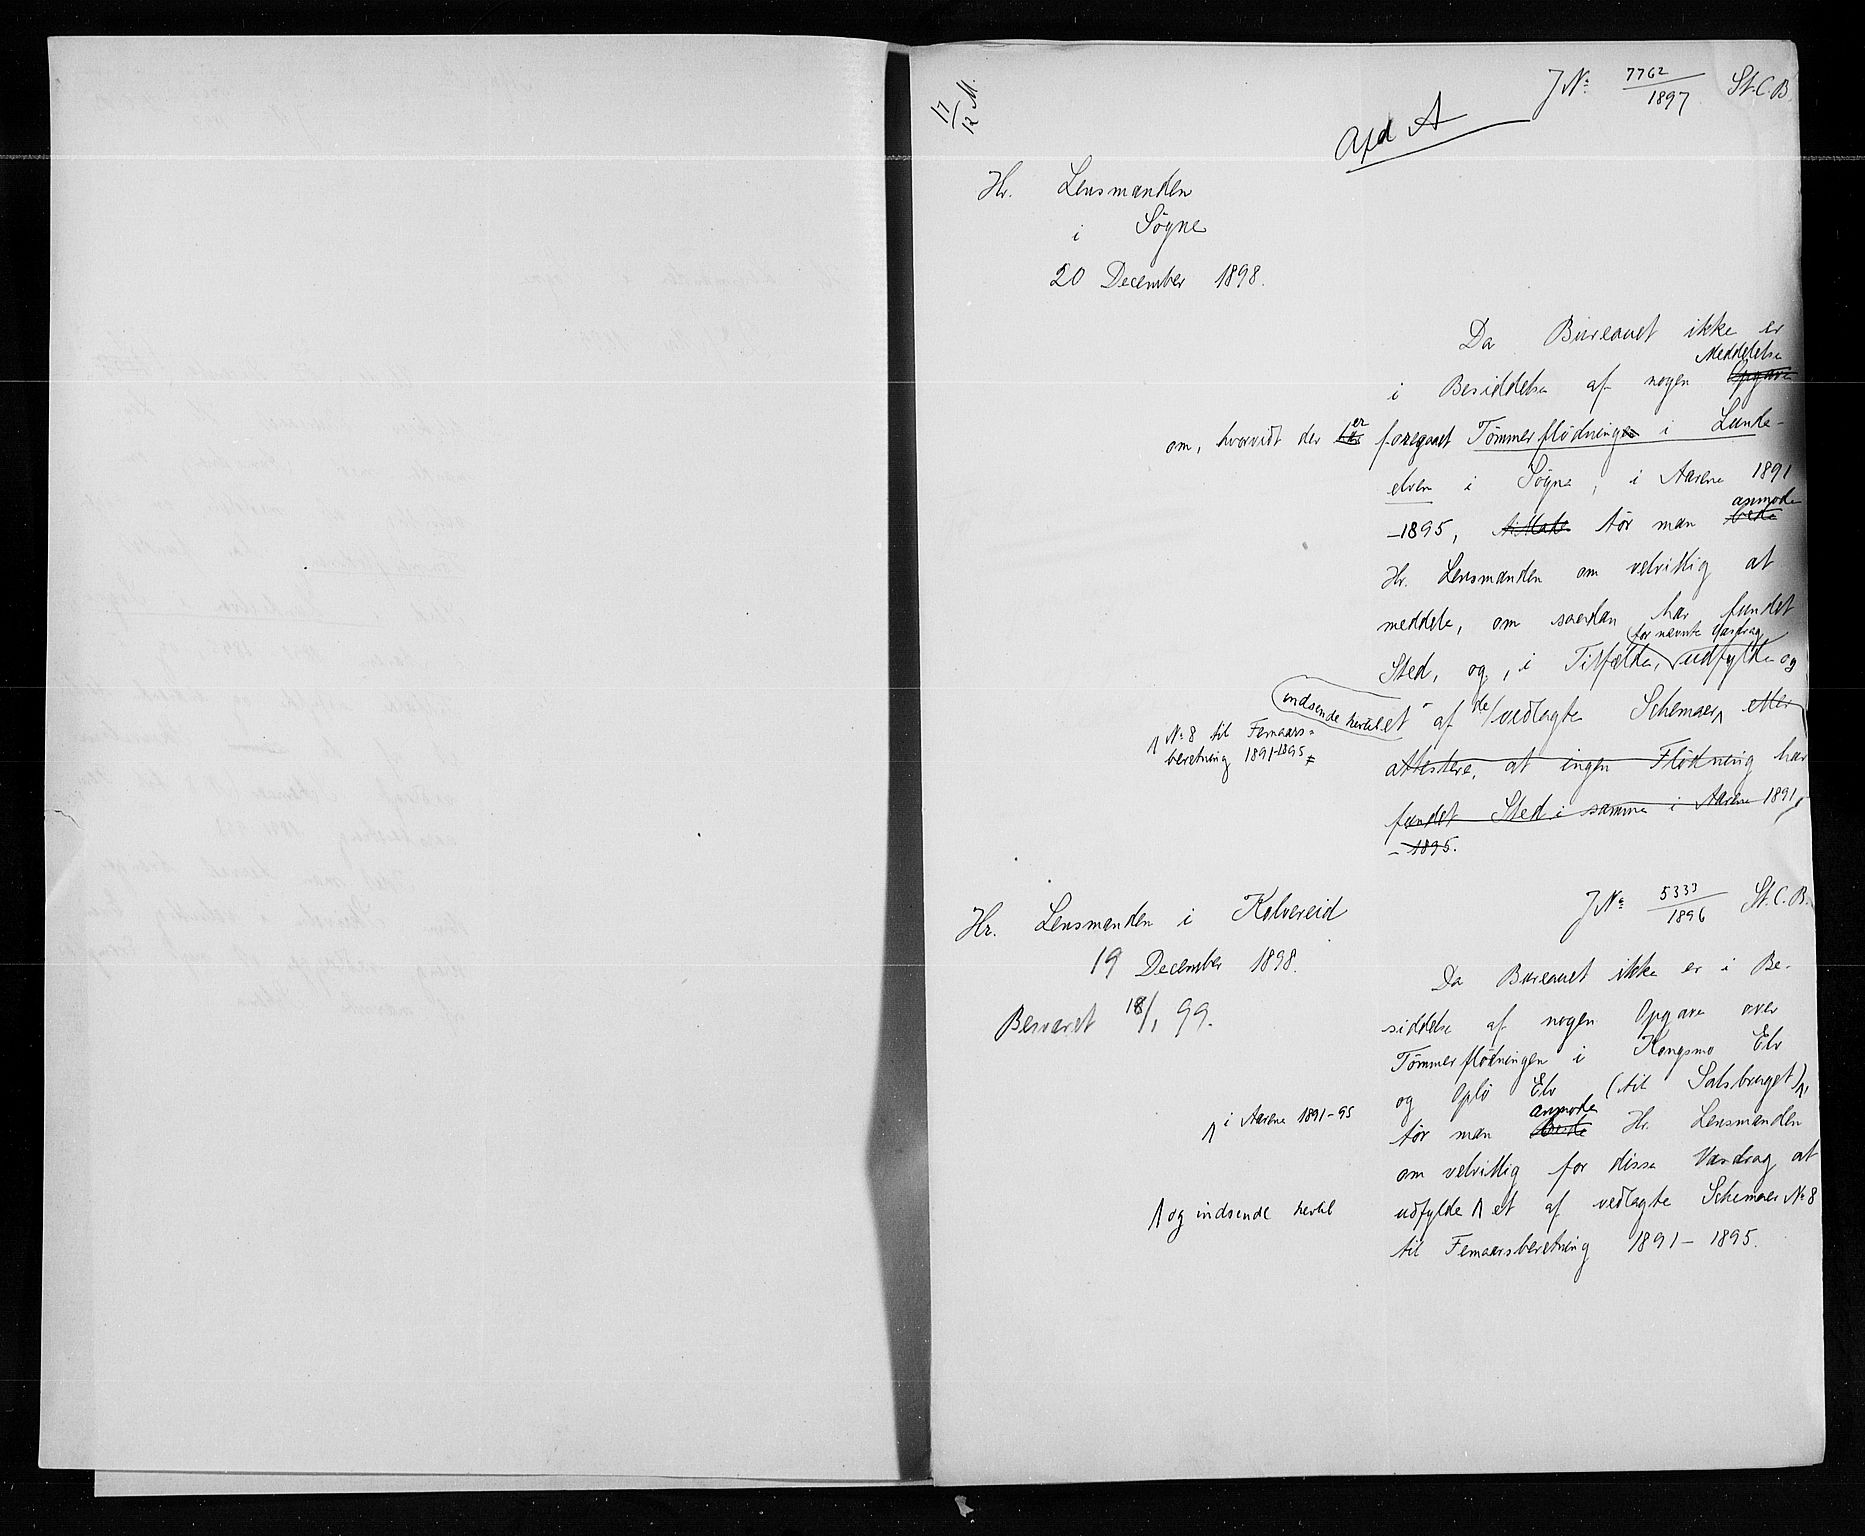 17/12 M.
J№ 7762/1897 St.C.B.
Afd A
Hr. Lensmanden
i Søgne
20 December 1898.
Da Bureauet ikke er
Meddelelse
i Besiddelse af nogen Opgave
om, hvorvidt der har er foregaaet Tømmerflødningen i Lunde-
elven i Søgne, i Aarene 1891
anmode
-1895, tillade tør man bede
Hr. Lensmanden om velvillig at
meddele, om saadan har fundet
for nævnte Vasdrag
Sted, og, i Tilfælde, udfylde og
indsende hertil et af de vedlagte Schemaer eller
№ 8 til Femaars-
beretning 1891-1895
attestere, at ingen Flødning har
fundet Sted i samme i Aarene 1891
- 1895.
J№ 5333/1896 St.C.B.
Hr. Lensmanden i Kolvereid
19 December 1898.
Besvaret 18/1 99.
Da Bureauet ikke er i Be-
siddelse af nogen Opgave over
Tømmerflødningen i Kongsmo Elv
og Oplø Elv (til Salsbruget),
i Aarene 1891-95
anmode
tør man bede Hr. Lensmanden
om velvillig for disse Vasdrag at
udfylde et af vedlagte Schemaer № 8
og indsende hertil
til Femaarsberetning 1891 - 1895.